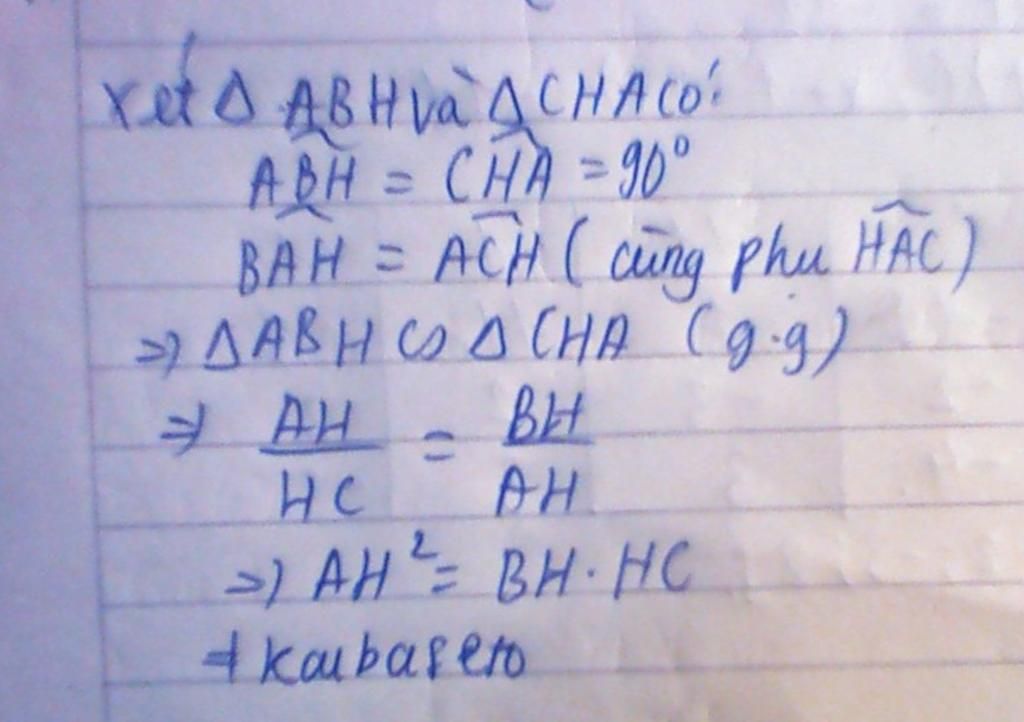 Xét Δ ABH và Δ CHA có:
ABH = CHA = 90°
BAH = ACH ( cùng phụ HAC )
=> Δ ABH ∽ Δ CHA ( g.g )
=> AH/HC = BH/AH
=> AH² = BH . HC